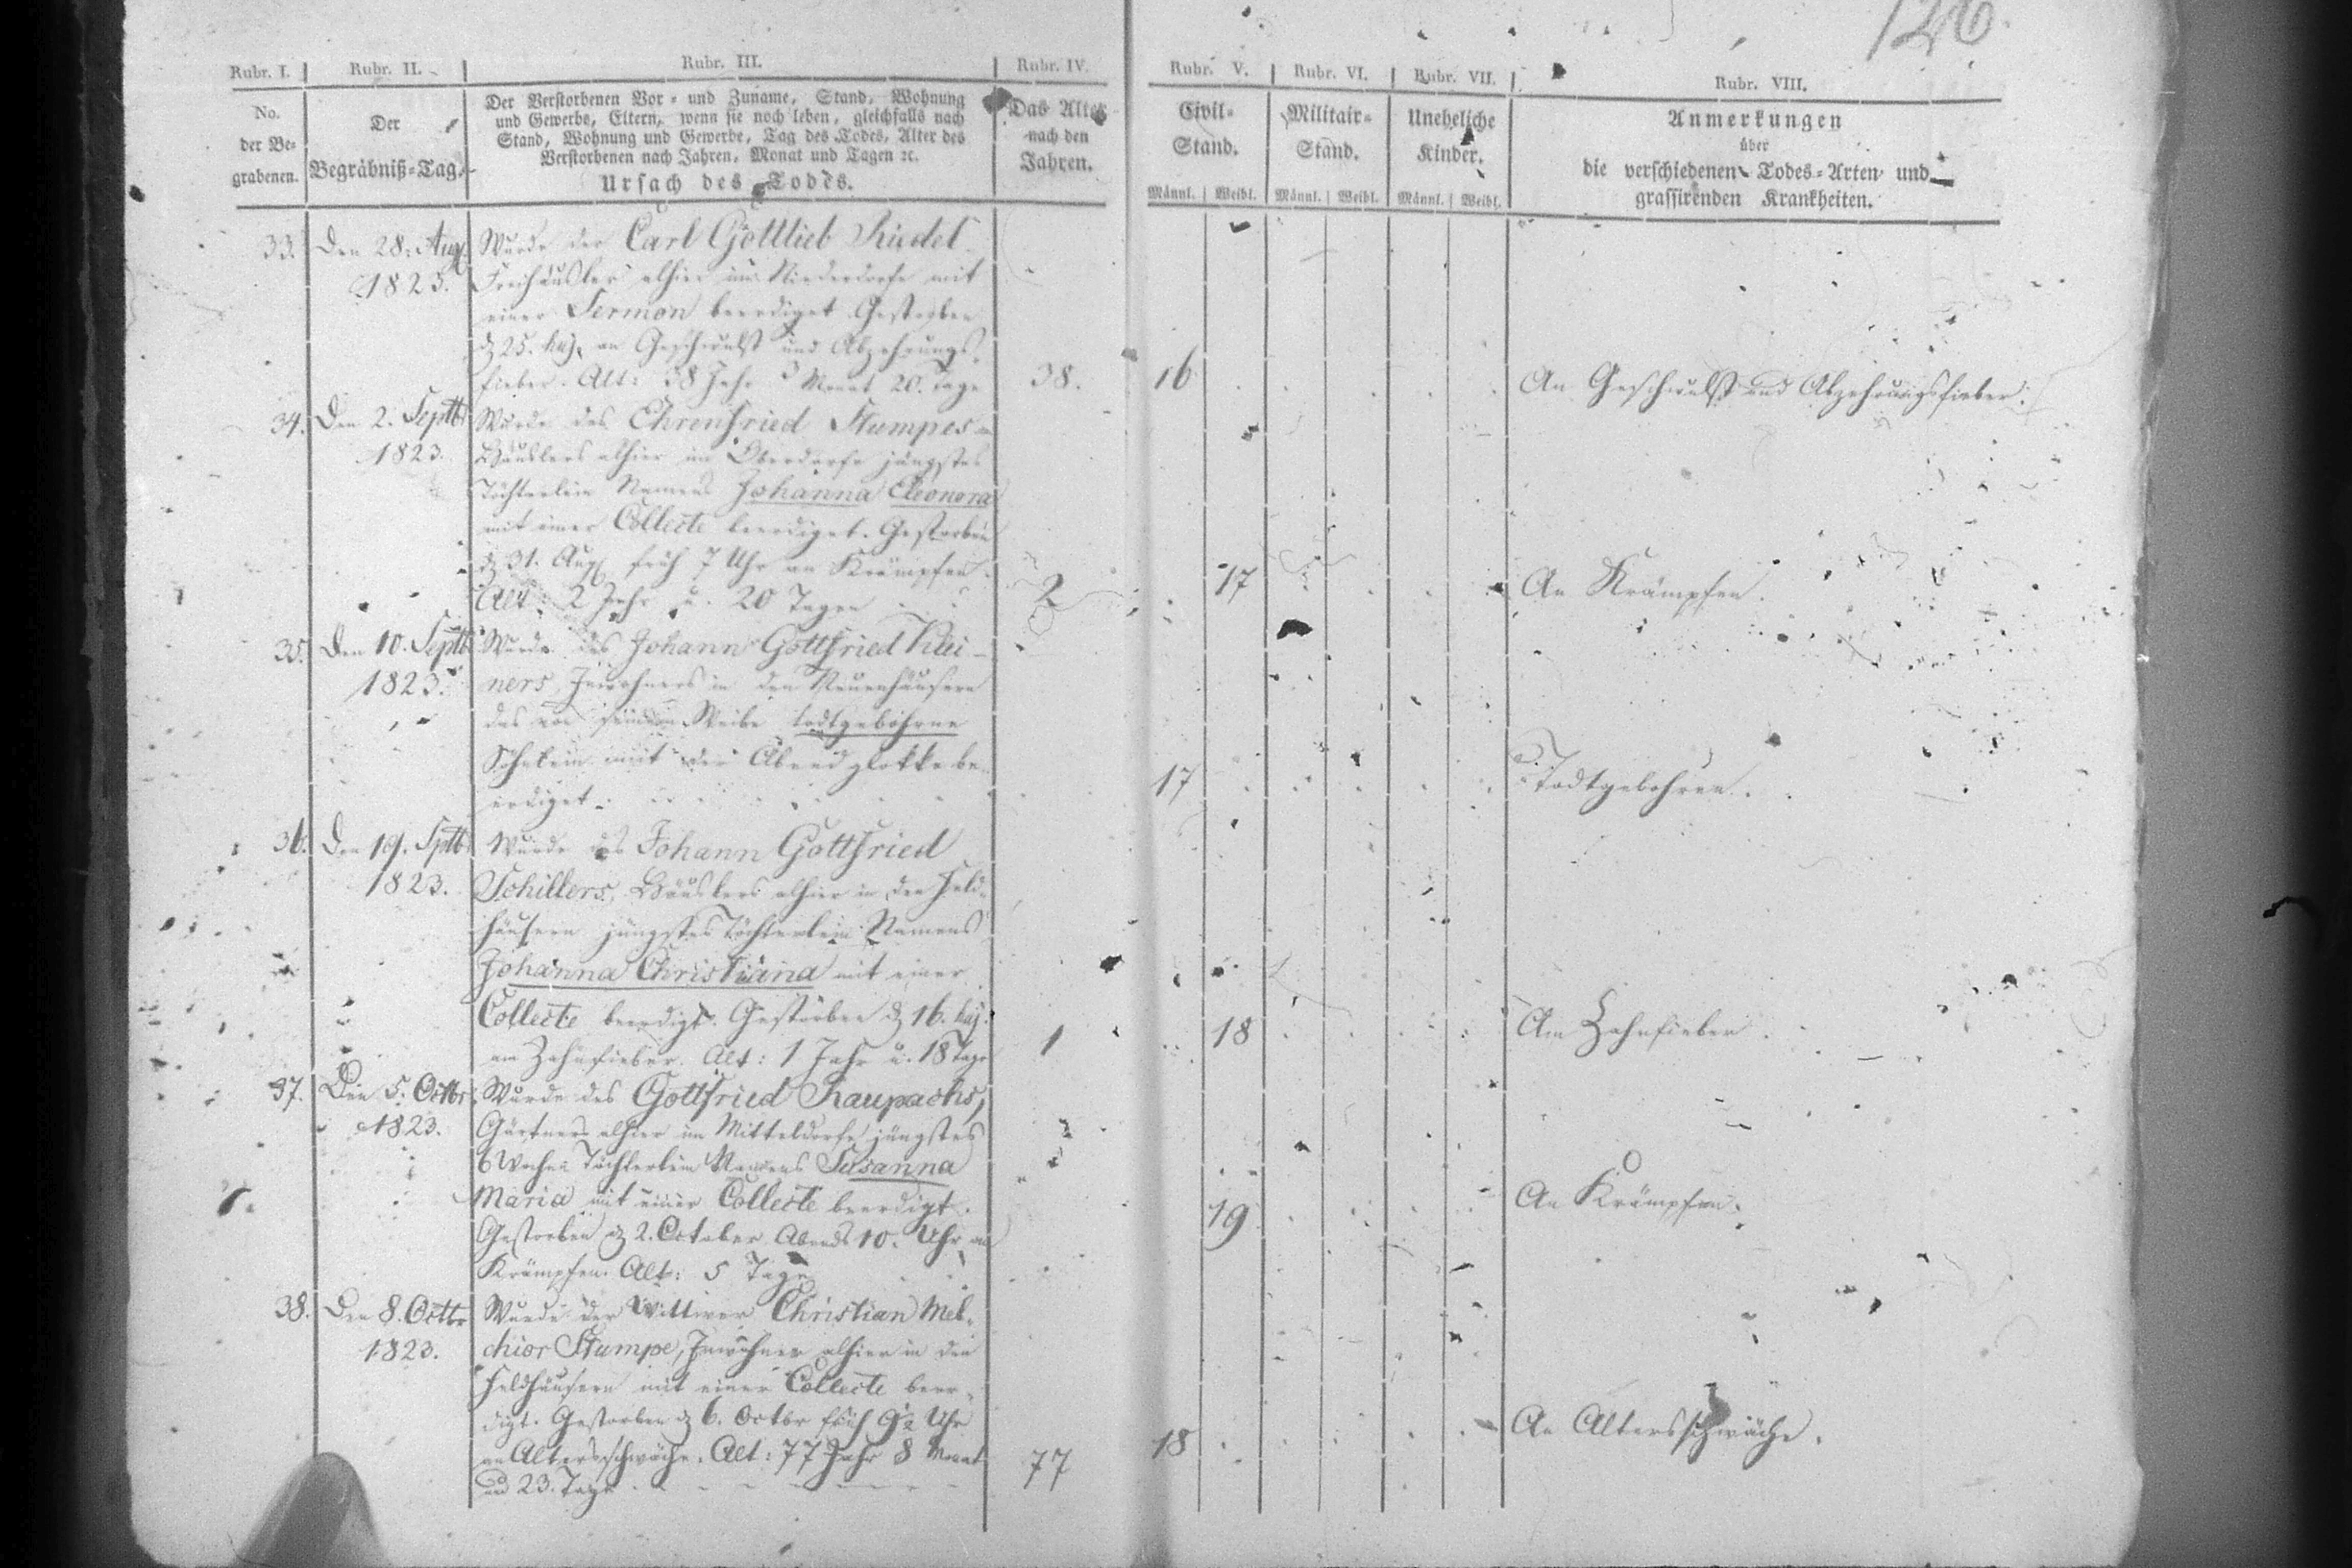 126.
Rubr. I. Rubr. II. Rubr. III. Rubr. IV. Rubr. V. Rubr. VI. Rubr. VII. Rubr. VIII.
No.
der Be-
grabenen.
Der
Begräbniß-Tag.
Der Verstorbenen Vor- und Zuname, Stand, Wohnung
und Gewerbe, Eltern, wenn sie noch leben, gleichfalls nach
Stand, Wohnung und Gewerbe, Tag des Todes, Alter des
Verstorbenen nach Jahren, Monat und Tagen ꝛc.
Ursach des Todes.
Das Alter
nach den
Jahren.
Civil-
Stand.
Männl. Weibl.
Militair-
Stand.
Männl. Weibl.
Uneheliche
Kinder.
Männl. Weibl.
Anmerkungen
über
die verschiedenen Todes-Arten und
grassirenden Krankheiten.
33. Den 28. Aug. Wurde der Carl Gottlieb
1823. Freihäusler alhier im Niederdorfe mit
einer Sermon beerdiget. Gestorben
25. an Geschwulst und Abzehrungs-
fieber. Alt: 38 Jahr 3 Monat 20. Tage 38. 16 An Geschwulst und Abzehrungsfieber.
34. Den 2. Septbr Wurde des Ehrenfried Stumpes
1823. Häuslers alhier im Oberdorfe jüngstes
Töchterlein Namens Johanna Eleonora
mit einer Collecte beerdiget. Gestorben
31. Aug früh 7 Uhr an Krämpfen.
Alt: 2 Jahr u. 20 Tagen 2 17 An Krämpfen.
35. Den 10. Septb Wurde des Johann Gottfried
1823. ners Inwohners in den Neuenhäusern
das von seinem Weibe todtgebohrne
Söhnlein mit der Abendglokke be-
erdiget. 17 Todtgebohren.
36. Den 19. Sptb Wurde des Johann Gottfried
1823. Schillers, Häuslers alhier in den Feld-
häusern jüngstes Töchterlein Namens
Johanna Christiana mit einer
Collecte beerdigt. Gestorben 16.
am Zahnfieber. Alt: 1 Jahr u. 18 Tage 1 18 Am Zahnfieber.
37. Den 5. Octbr Wurde des Gottfried Raupachs,
1823. Gärtners alhier im Mitteldorfe jüngstes
6 Wochen Töchterlein Namens Susanna
Maria mit einer Collecte beerdigt.
Gestorben 2. October Abends 10. Uhr an
Krämpfen. Alt: 5 Tage 19 An Krämpfen.
38. Den 8. Octbr Wurde der Wittwer Christian Mel-
1823. chior Stumpe, Inwohner alhier in den
Feldhäusern mit einer Collecte beer-
digt. Gestorben 6. Octbr früh 9½ Uhr
an Altersschwäche. Alt: 77 Jahr 8 Monat
und 23. Tage 77 18 An Altersschwäche.